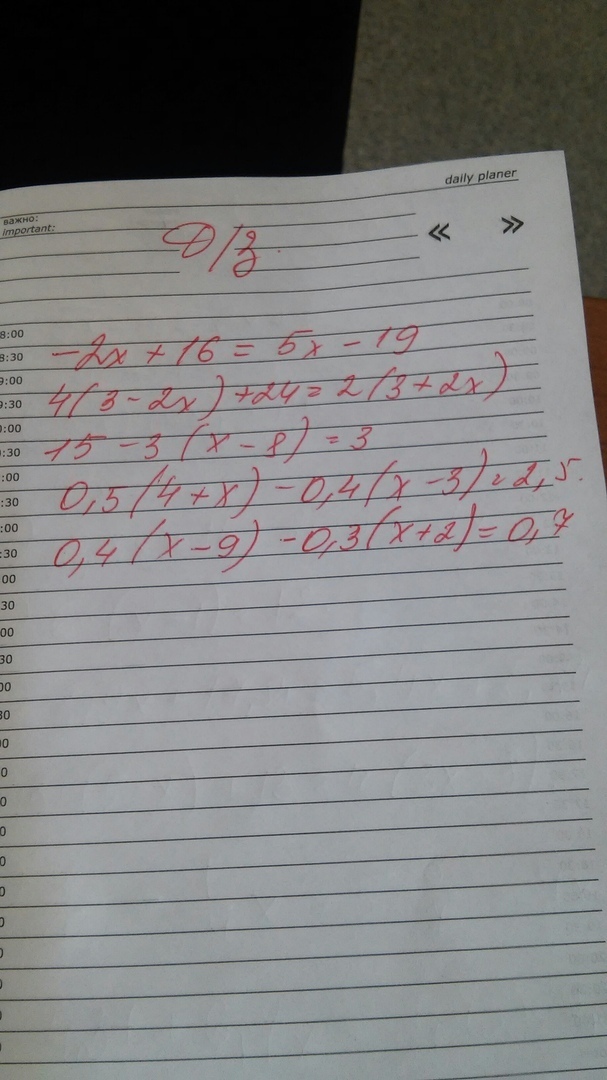 daily planer
важно:
important:
« »
Д/З.
8:00
8:30
-2x + 16 = 5x - 19
9:00
9:30
4(3 - 2x) + 24 = 2(3 + 2x)
:00
:30
15 - 3(x - 8) = 3
:00
:30
0,5(4 + x) - 0,4(x - 3) = 2,5.
:00
:30
0,4(x - 9) - 0,3(x + 2) = 0,7
00
30
00
30
00
30
00
0
0
0
0
0
0
0
0
0